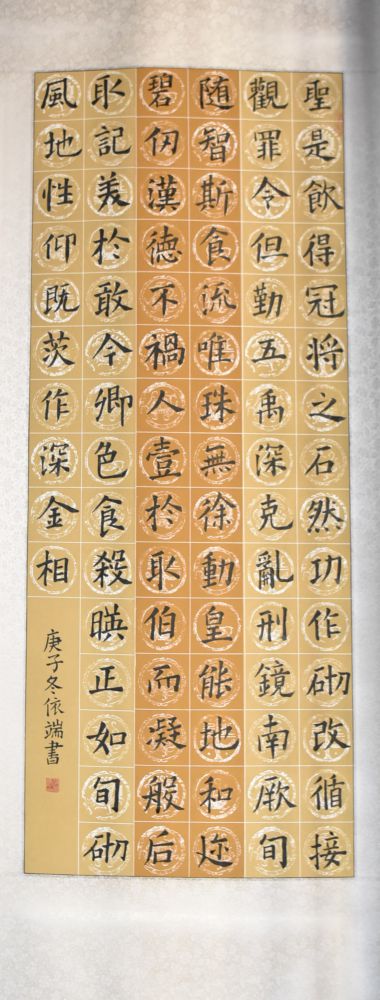 聖是飲得冠將之石然功作砌改循接
觀罪令但勤五禹深克亂刑鏡南厥旬
随智斯食流唯珠無徐動皇能地和迩
碧仞漢德不禍人壹於取伯而凝般后
取記美於敢今卿色食殺暎正如旬砌
風地性仰既茨作深金相
庚子冬依端書